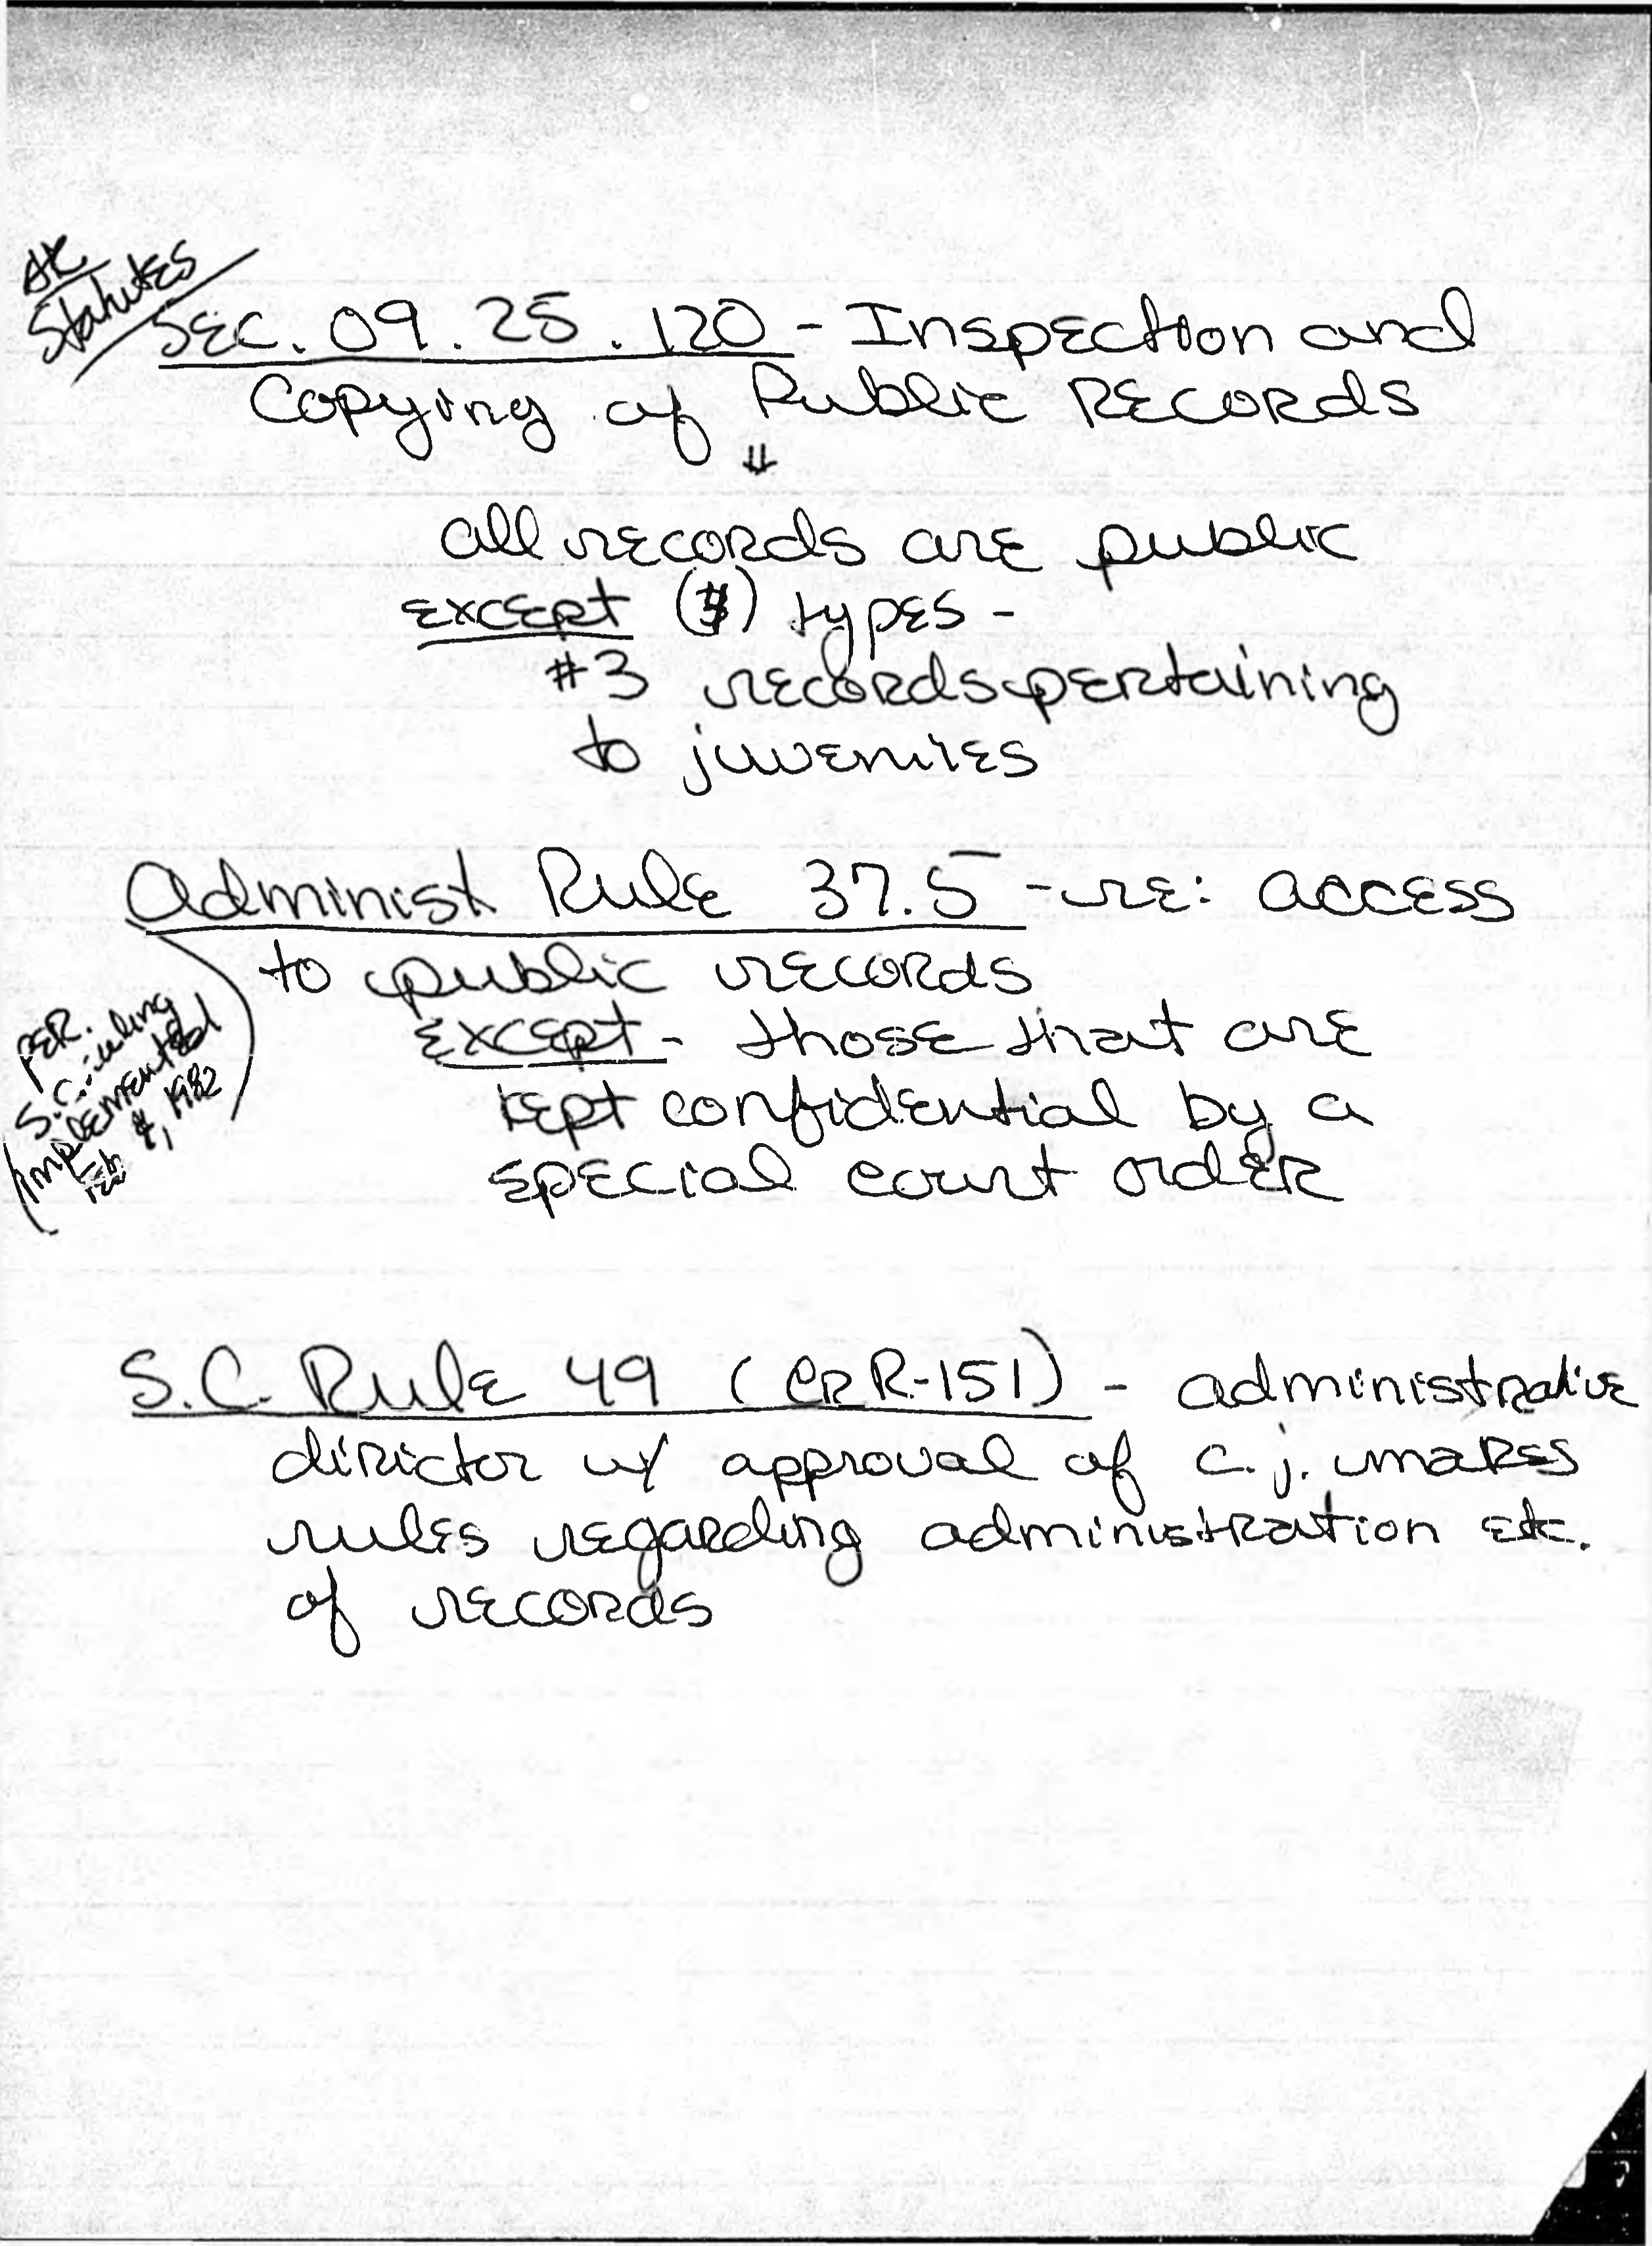 AK
Statutes
SEC. 09.25.120 - Inspection and
Copying of Public Records
⇓
all records are public
except ( ) types -
#3 records pertaining
to juveniles
Administ Rule 37.5 - re: access
to public records
PER.
S.C. ruling
(implemented
Feb , 1982
except - those that are
kept confidential by a
special court order
S.C. Rule 49 (CRR-151) - administrative
dirictor w/ approval of c.j. makes
rules regarding administration etc.
of records